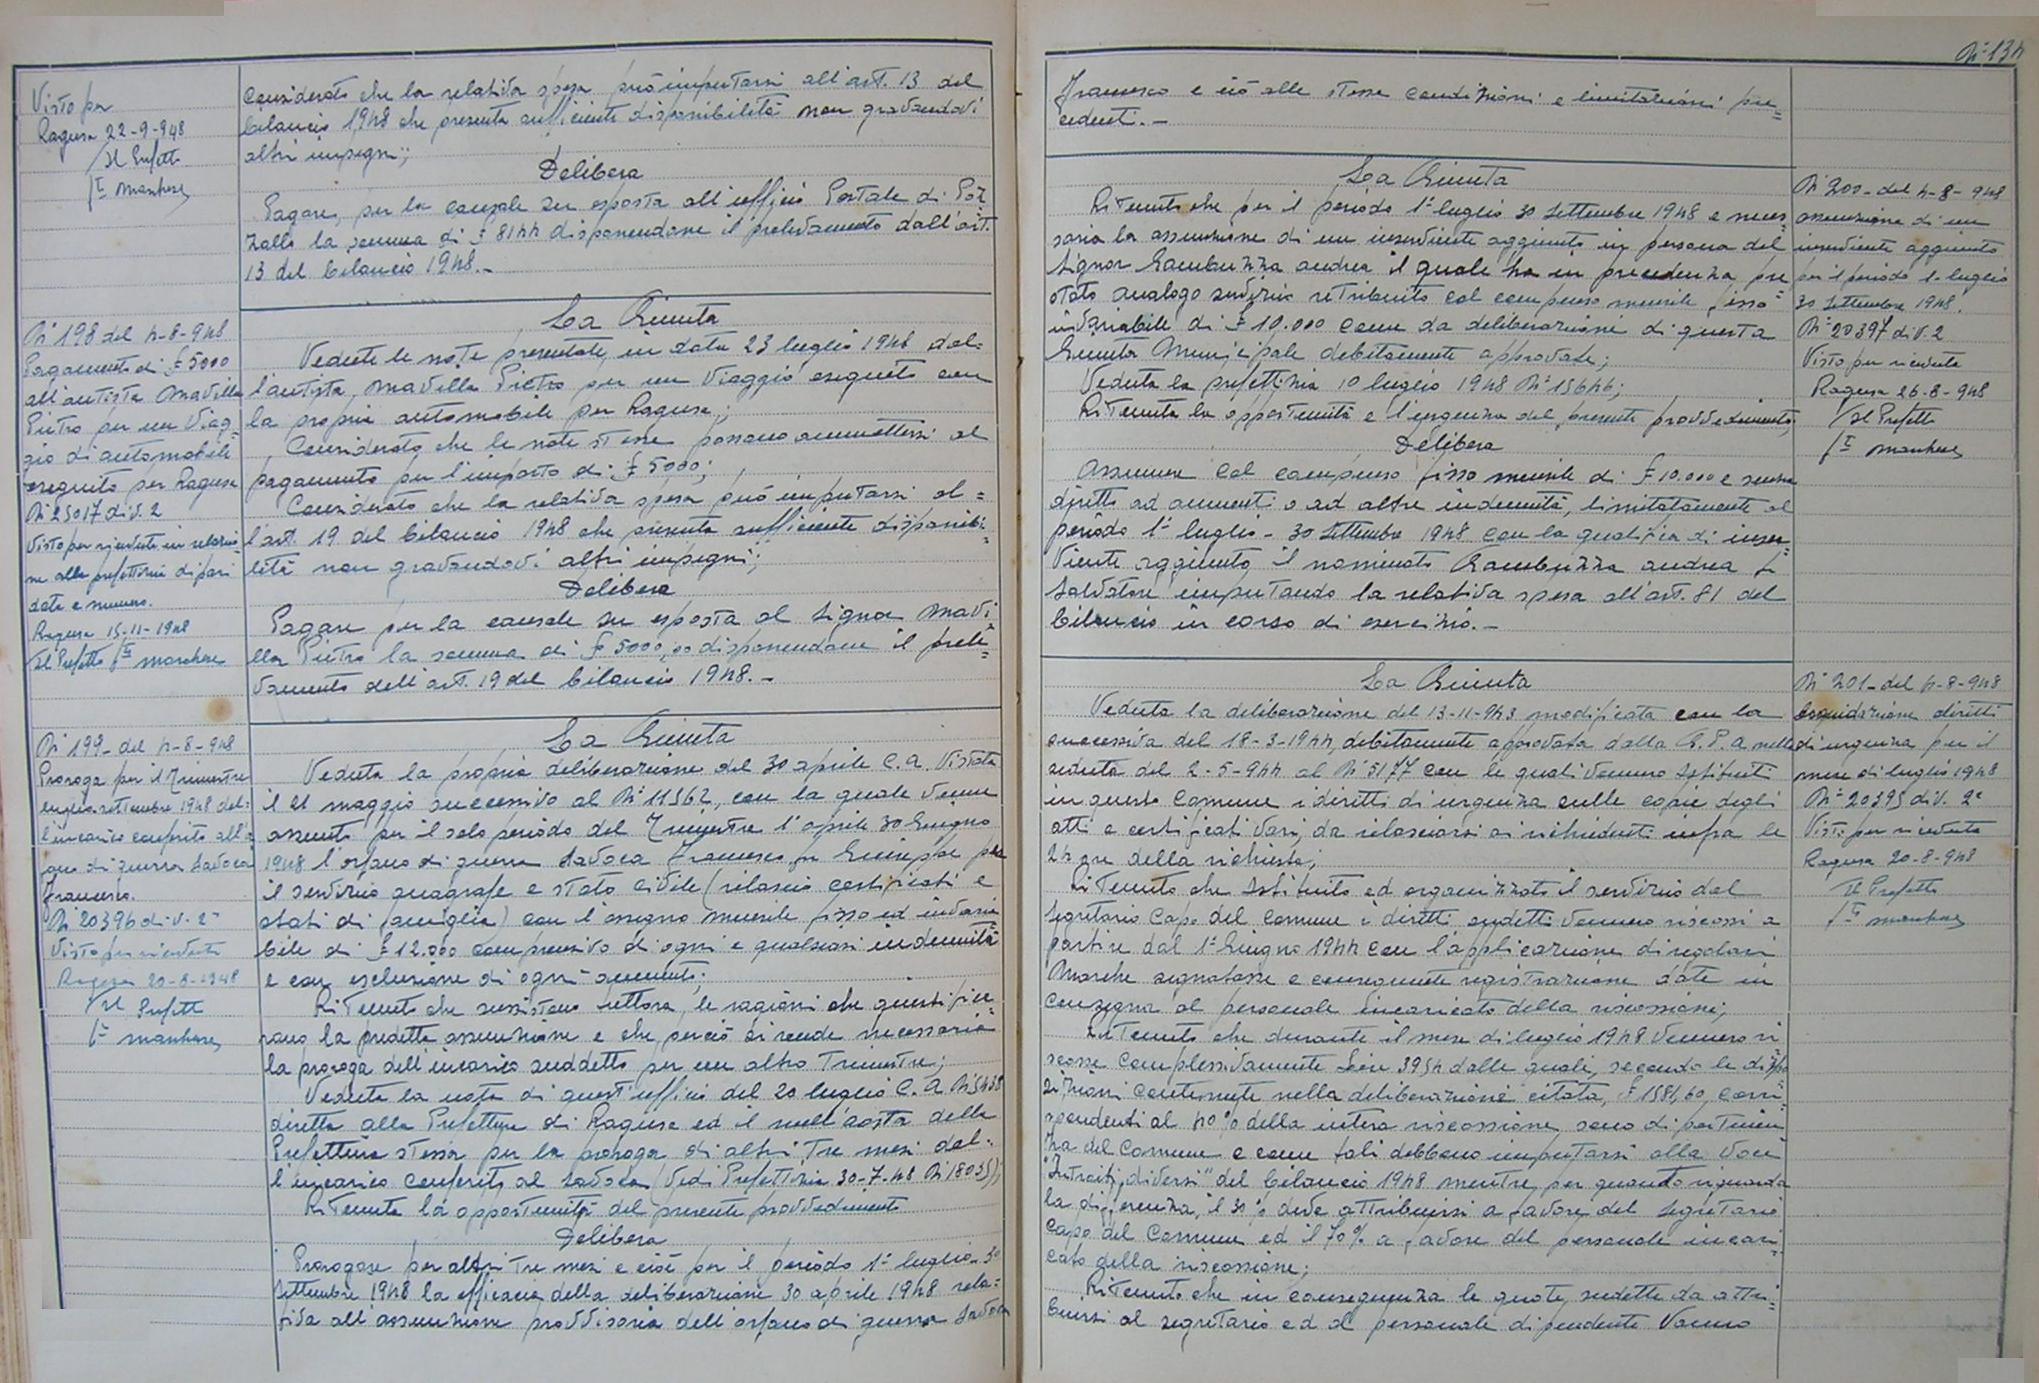 Visto per
Ragusa 22-9-948
Il Prefetto
Fto Marchese
considerato che la relativa spesa può imputarsi all'art. 13 del
bilancio 1948 che presenta sufficiente disponibilità non gravandovi
altri impegni;
Delibera
Pagare, per la causale su esposta all'ufficio Postale di Poz
zallo la somma di £ 8144 disponendone il prelevamento dall'art.
13 del bilancio 1948.-
N° 198 del 4-8-948
Pagamento di £ 5000
all'autista Mavilla
Pietro per un viag=
gio di automobile
eseguito per Ragusa
N° 25017 div. 2
Visto per ricevuta in relazio
ne alla prefettizia di pari
data e numero.
Ragusa 15-11-1948
Il Prefetto Fto Marchese
La Giunta
Vedute le note presentate in data 23 luglio 1948 dal=
l'autista Mavilla Pietro per un viaggio eseguito con
la propria automobile per Ragusa;
Considerato che le note stesse possano ammettersi al
pagamento per l'importo di £ 5000;
Considerato che la relativa spesa può imputarsi al=
l'art. 19 del bilancio 1948 che presenta sufficiente disponibi=
lità non gravandovi altri impegni;
Delibera
Pagare per la causale su esposta al Signor Mavi
lla Pietro la somma di £ 5000,00 disponendone il prele=
vamento dell'art. 19 del bilancio 1948.-
N° 199- del 4-8-948
Proroga per il Trimestre
luglio settembre 1948 del=
l'incarico conferito all'or
fano di guerra Savoca
Francesco.
N° 20396 div. 2ª
Visto per ricevuta
Ragusa 20-8-1948
Il Prefetto
Fto Marchese
La Giunta
Veduta la propria deliberazione del 30 aprile c.a. Vistata
il 21 maggio successivo al N° 11562, con la quale venne
assunto per il solo periodo del Trimestre 1° aprile 30 Giugno
1948 l'orfano di guerra Savoca Francesco fu Giuseppe per
il servizio anagrafe e stato civile (rilascio certificati e
stati di famiglia) con l'assegno mensile fisso ed invaria
bile di £ 12.000 comprensivo di ogni e qualsiasi indennità
e con esclusione di ogni aumento;
Ritenuto che sussistono tuttora, le ragioni che giustifica=
rono la predetta assunzione e che perciò si rende necessaria
la proroga dell'incarico suddetto per un altro Trimestre;
Veduta la nota di quest'ufficio del 20 luglio c.a. N° 5438
diretta alla Prefettura di Ragusa ed il nulla osta della
Prefettura stessa per la proroga di altri tre mesi del=
l'incarico conferito al Savoca (Vedi Prefettizia 30-7-48 N° 18035);
Ritenuta la opportunità del presente provvedimento
Delibera
Prorogare per altri tre mesi e cioè per il periodo 1° luglio-30
settembre 1948 la efficacia della deliberazione 30 aprile 1948 rela=
tiva all'assunzione provvisoria dell'orfano di guerra Savoca
N° 134
Francesco e ciò alle stesse condizioni e limitazioni pre=
cedenti.-
La Giunta
Ritenuto che per il periodo 1° luglio 30 Settembre 1948 è neces=
saria la assunzione di un inserviente aggiunto in persona del
Signor Gambuzza Andrea il quale ha in precedenza pre
stato analogo servizio retribuito col compenso mensile fisso=
invariabile di £ 10.000 come da deliberazioni di questa
Giunta Municipale debitamente approvate;
Veduta la prefettizia 10 luglio 1948 N° 15646;
Ritenuta la opportunità e l'urgenza del presente provvedimento;
Delibera
Assumere col compenso fisso mensile di £ 10.000 e senza
diritto ad aumenti o ad altre indennità, limitatamente al
periodo 1° luglio - 30 Settembre 1948 con la qualifica di inser=
viente aggiunto il nominato Gambuzza Andrea fu
Salvatore imputando la relativa spesa all'art. 81 del
bilancio in corso di esercizio.-
N° 200- del 4-8-948
assunzione di un
inserviente aggiunto
per il periodo 1- luglio
30 Settembre 1948.
N° 20397 div. 2
Visto per ricevuta
Ragusa 26-8-948
Il Prefetto
Fto Marchese
La Giunta
Veduta la deliberazione del 13-11-943 modificata con la
successiva del 18-3-1944, debitamente approvata dalla G.P.A. nella
seduta del 2-5-944 al N° 5177 con le quali vennero istituiti
in questo Comune i diritti di urgenza sulle copie degli
atti e certificati vari, da rilasciarsi ai richiedenti infra le
24 ore della richiesta;
Ritenuto che istituito ed organizzato il servizio dal
Segretario Capo del Comune i diritti suddetti vennero riscossi a
partire dal 1° Giugno 1944 con l'applicazione di regolari
Marche segnatasse e conseguente registrazione date in
consegna al personale incaricato della riscossione;
Ritenuto che durante il mese di luglio 1948 vennero ri
scosse complessivamente Lire 3954 dalle quali, secondo le dispo
sizioni contenute nella deliberazione citata, £ 1581,60, corri=
spondenti al 40% della intera riscossione sono di pertinen
za del Comune e come tali debbono imputarsi alla voce
"Introiti diversi" del bilancio 1948 mentre per quanto riguarda
la differenza, il 30% deve attribuirsi a favore del Segretario
Capo del Comune ed il 70% a favore del personale incari=
cato della riscossione;
Ritenuto che in conseguenza le quote suddette da attri=
buirsi al segretario ed al personale dipendente vanno
N° 201- del 4-8-948
Liquidazione diritti
di urgenza per il
mese di luglio 1948
N° 20395 div. 2ª
Visto per ricevuta
Ragusa 20-8-948
Il Prefetto
Fto Marchese